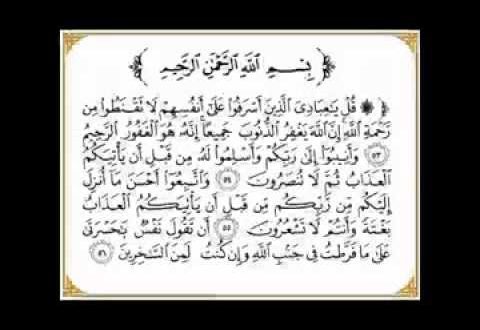 ﴿ بِسْمِ ٱللَّهِ ٱلرَّحْمَٰنِ ٱلرَّحِيمِ ﴾
﴿ ۞ قُلْ يَٰعِبَادِىَ ٱلَّذِينَ أَسْرَفُوا۟ عَلَىٰٓ أَنفُسِهِمْ لَا تَقْنَطُوا۟ مِن
رَّحْمَةِ ٱللَّهِ إِنَّ ٱللَّهَ يَغْفِرُ ٱلذُّنُوبَ جَمِيعًا إِنَّهُۥ هُوَ ٱلْغَفُورُ ٱلرَّحِيمُ
٥٣ وَأَنِيبُوٓا۟ إِلَىٰ رَبِّكُمْ وَأَسْلِمُوا۟ لَهُۥ مِن قَبْلِ أَن يَأْتِيَكُمُ
ٱلْعَذَابُ ثُمَّ لَا تُنصَرُونَ ٥٤ وَٱتَّبِعُوٓا۟ أَحْسَنَ مَآ أُنزِلَ
إِلَيْكُم مِّن رَّبِّكُم مِّن قَبْلِ أَن يَأْتِيَكُمُ ٱلْعَذَابُ
بَغْتَةً وَأَنتُمْ لَا تَشْعُرُونَ ٥٥ أَن تَقُولَ نَفْسٌ يَٰحَسْرَتَىٰ
عَلَىٰ مَا فَرَّطتُ فِى جَنۢبِ ٱللَّهِ وَإِن كُنتُ لَمِنَ ٱلسَّٰخِرِينَ ٥٦